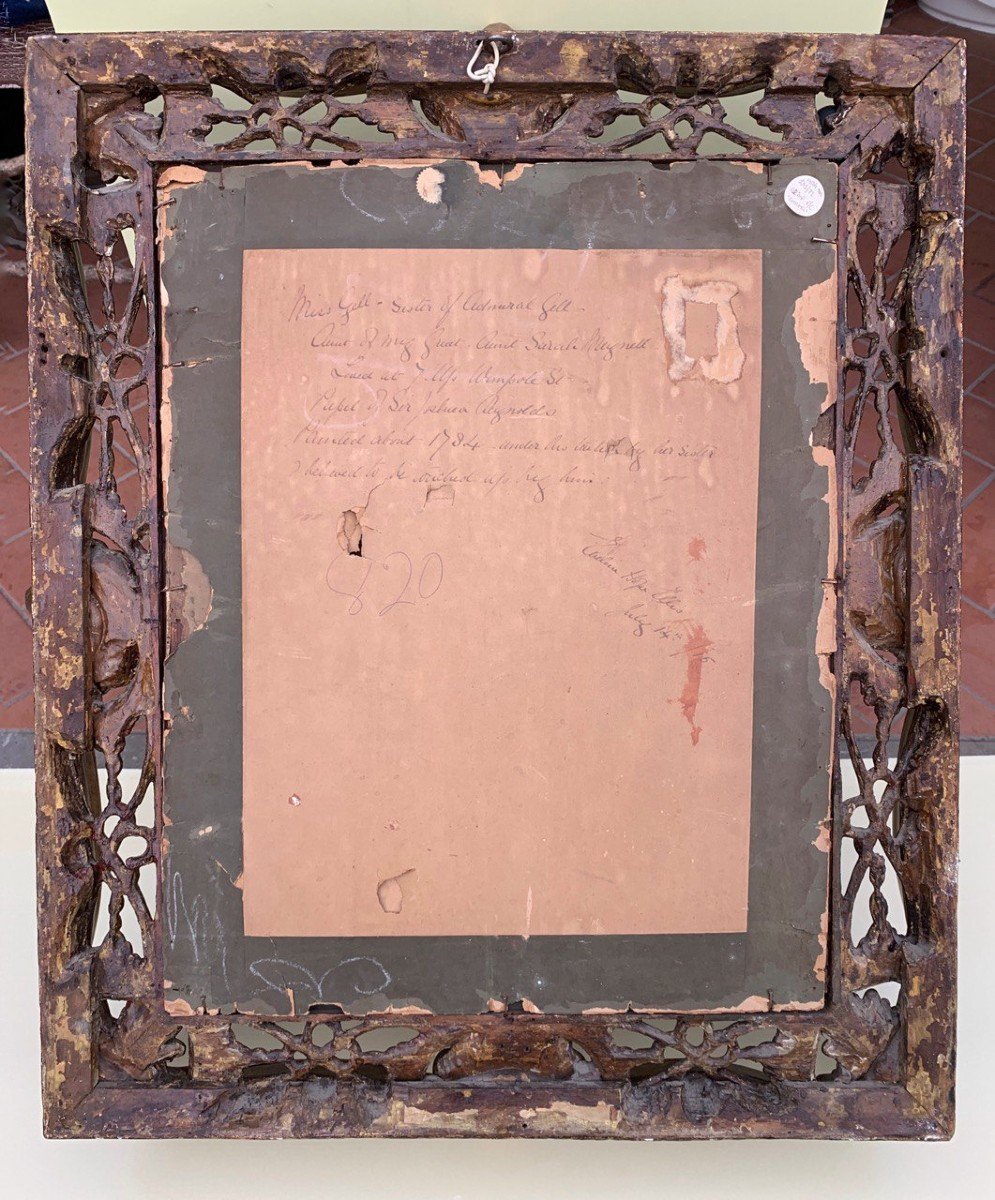 Miss Gell - Sister of Admiral Gell -
Aunt of my Great-Aunt Sarah Meynell
Lived at 7 Up Wimpole St -
Pupil of Sir Joshua Reynolds
Painted about 1784 under his by her sister
& believed to be touched up by him.
820
Edna Hope Ellis
July 14th